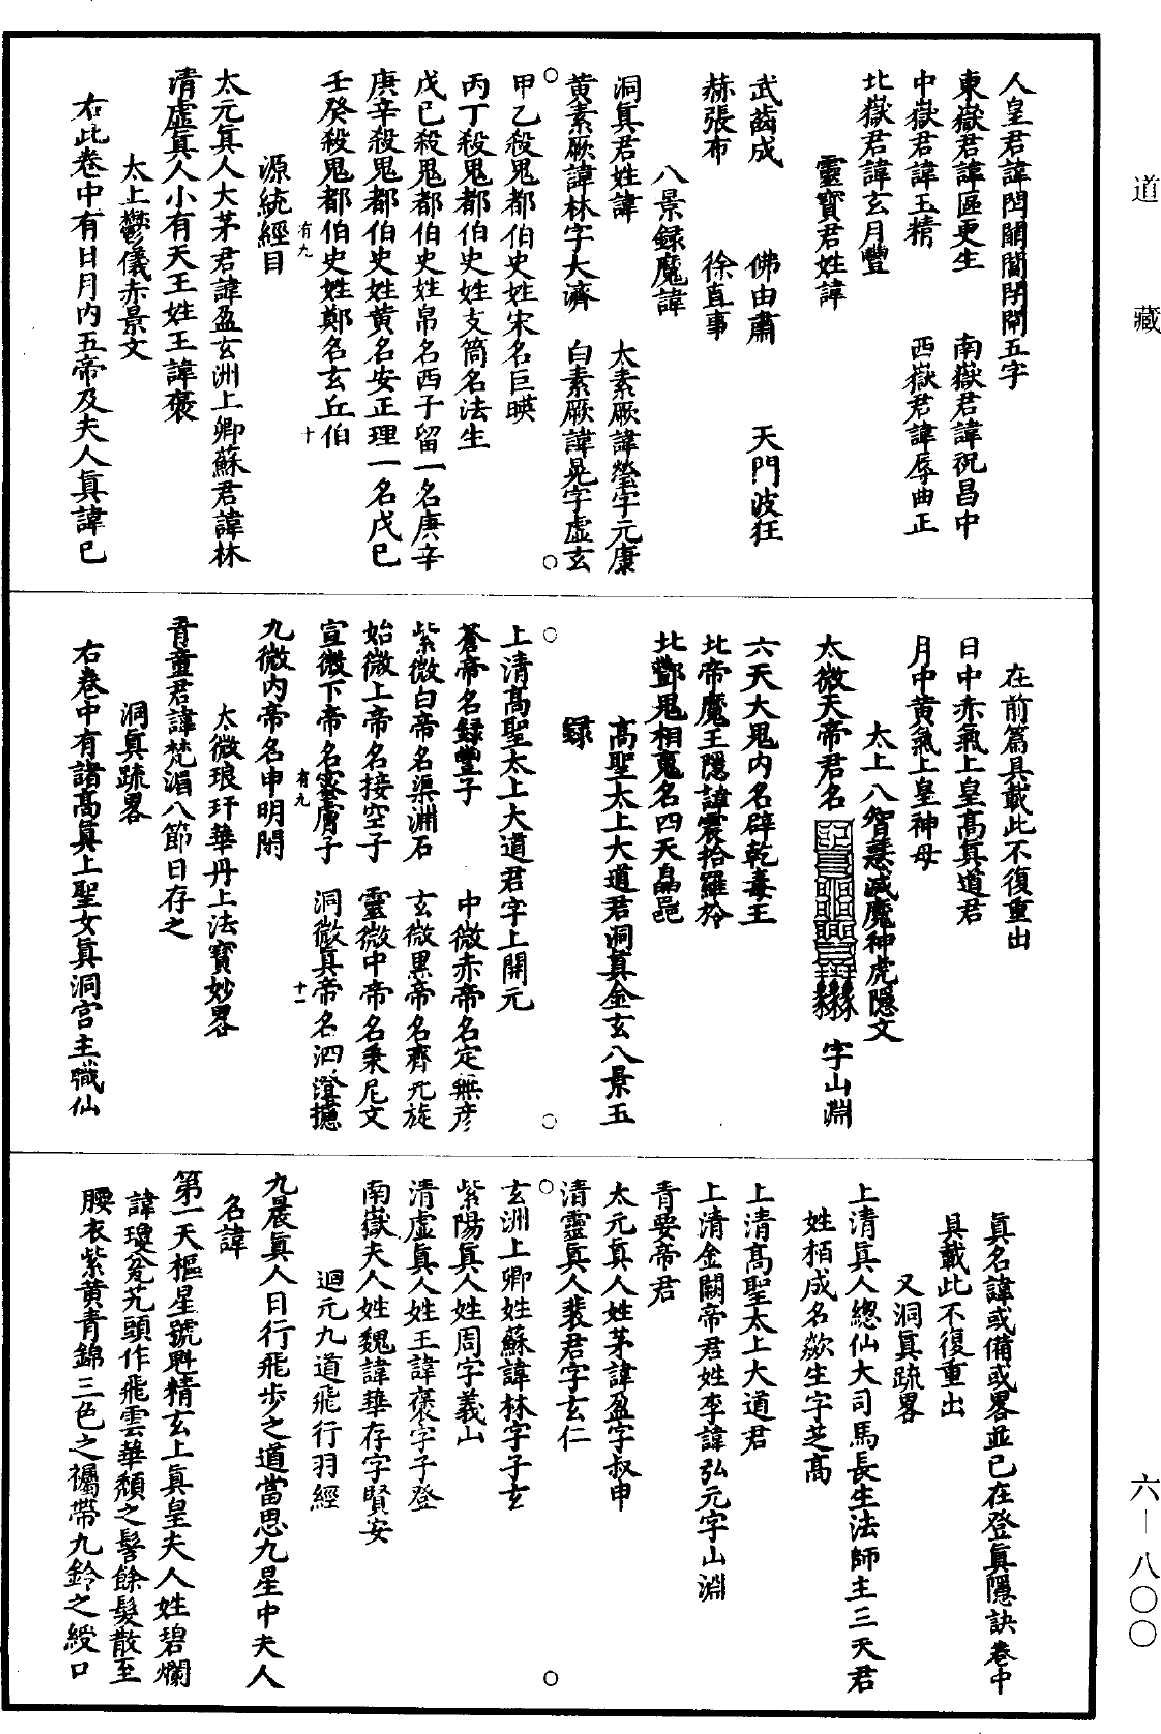 道藏
六—八〇〇
人皇君諱閆闓閶閉開五字
東嶽君諱區更生　南嶽君諱祝昌中
中嶽君諱玉精　西嶽君諱辱曲正
北嶽君諱玄月豐
靈寳君姓諱
武齒成　佛由肅　天門波狂
赫張布　徐直事
八景録魔諱
洞真君姓諱　太素厥諱瑩字元康
黄素厥諱林字大濟　白素厥諱晃字虚玄
甲乙殺鬼都伯史姓宋名巨暎
丙丁殺鬼都伯史姓支筒名法生
戊巳殺鬼都伯史姓帛名西子留一名庚辛
庚辛殺鬼都伯史姓黄名安正理一名戊巳
壬癸殺鬼都伯史姓鄭名玄丘伯
有九　十
源統經目
太元真人大茅君諱盈玄洲上卿蘇君諱林
清虚真人小有天王姓王諱褒
太上鬱儀赤景文
右此卷中有日月内五帝及夫人真諱已
在前篇具載此不復重出
日中赤氣上皇高真道君
月中黄氣上皇神母
太上八智慧滅魔神虎隱文
太微天帝君名　字山淵
六天大鬼内名辟乾毒王
北帝魔王隱諱震拾羅於
北酆鬼相名四天皛邑
高聖太上大道君洞真金玄八景五
録
上清高聖太上大道君字上開元
蒼帝名録豐子　中微赤帝名定無彦
紫微白帝名渠淵石　玄微黒帝名齊元旋
始微上帝名接空子　靈微中帝名秉尼文
宣微下帝名蜜膚子　洞微真帝名泗澄擿
有九　十一
九微内帝名申明閞
太微琅玕華丹上法寳妙畧
青童君諱梵湄八節日存之
洞真疏畧
右卷中有諸高真上聖女真洞宫主職仙
真名諱或備或畧並已在登真隱訣卷中
具載此不復重出
又洞真疏畧
上清真人總仙大司馬長生法師主三天君
姓栢成名歘生字芝高
上清高聖太上大道君
上清金闕帝君姓李諱弘元字山淵
青要帝君
太元真人姓茅諱盈字叔申
清靈真人裴君字玄仁
玄洲上卿姓蘇諱林字子玄
紫陽真人姓周字義山
清虚真人姓王諱褒字子登
南嶽夫人姓魏諱華存字賢安
迴元九道飛行羽經
九晨真人日行飛步之道當思九星中夫人
名諱
第一天樞星號魁精玄上真皇夫人姓碧爛
諱瓊兊頭作飛雲華頽之髻餘髮散至
腰衣紫黄青錦三色之襡帶九鈴之綬口